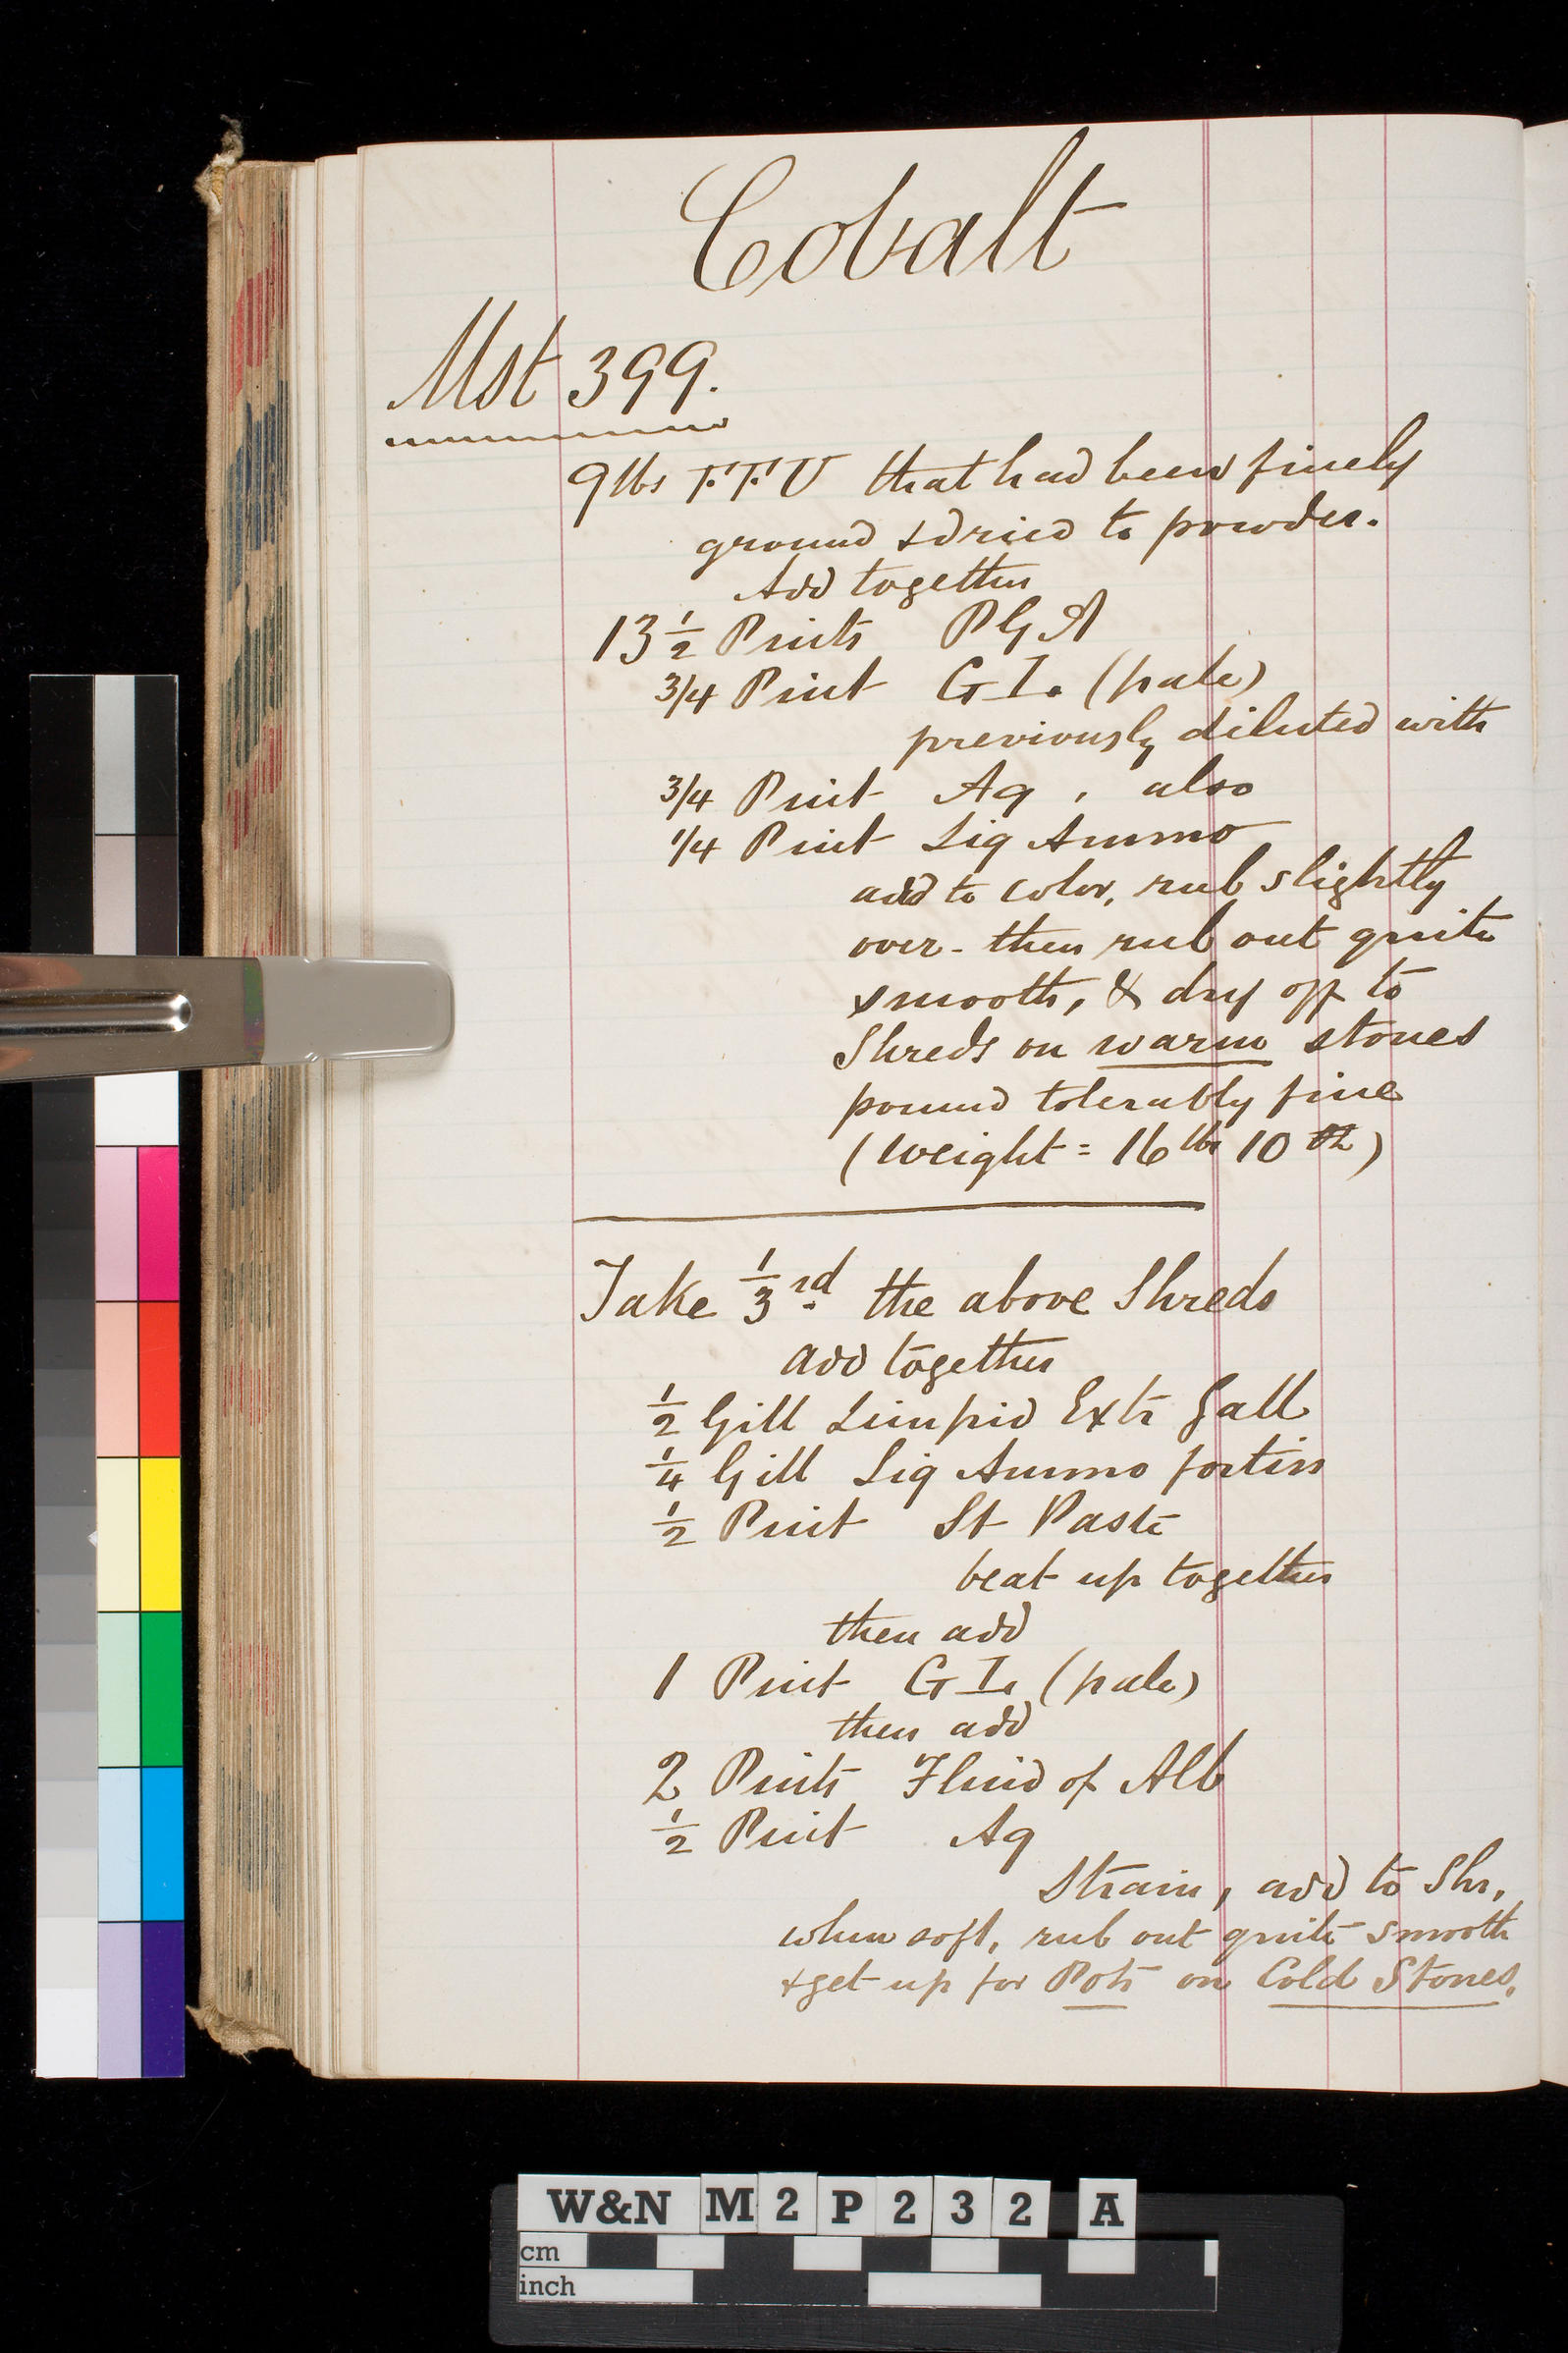 Cobalt
Mst 399.
9 lbs F.F.U that had been finely
ground & dried to powder.
Add together
13 1/2 Pints PGA
3/4 Pint GI. (pale)
previously diluted with
3/4 Pint Aq , also
1/4 Pint Liq Ammo
add to color, rub slightly
over - then rub out quite
smooth, & dry off to
Shreds on warm stones
pound tolerably fine
(Weight = 16 lbs 10 oz)
Take 1/3rd the above Shreds
add together
1/2 Gill Limpid Extr Gall
1/4 Gill Liq Ammo fortiss
1/2 Pint St Paste
beat up together
then add
1 Pint GI. (pale)
then add
2 Pints Fluid of Alb
1/2 Pint Aq
Strain, add to Shr,
when soft, rub out quite smooth
& get up for Pots on Cold Stones.
W&N M2P232 A
cm
inch